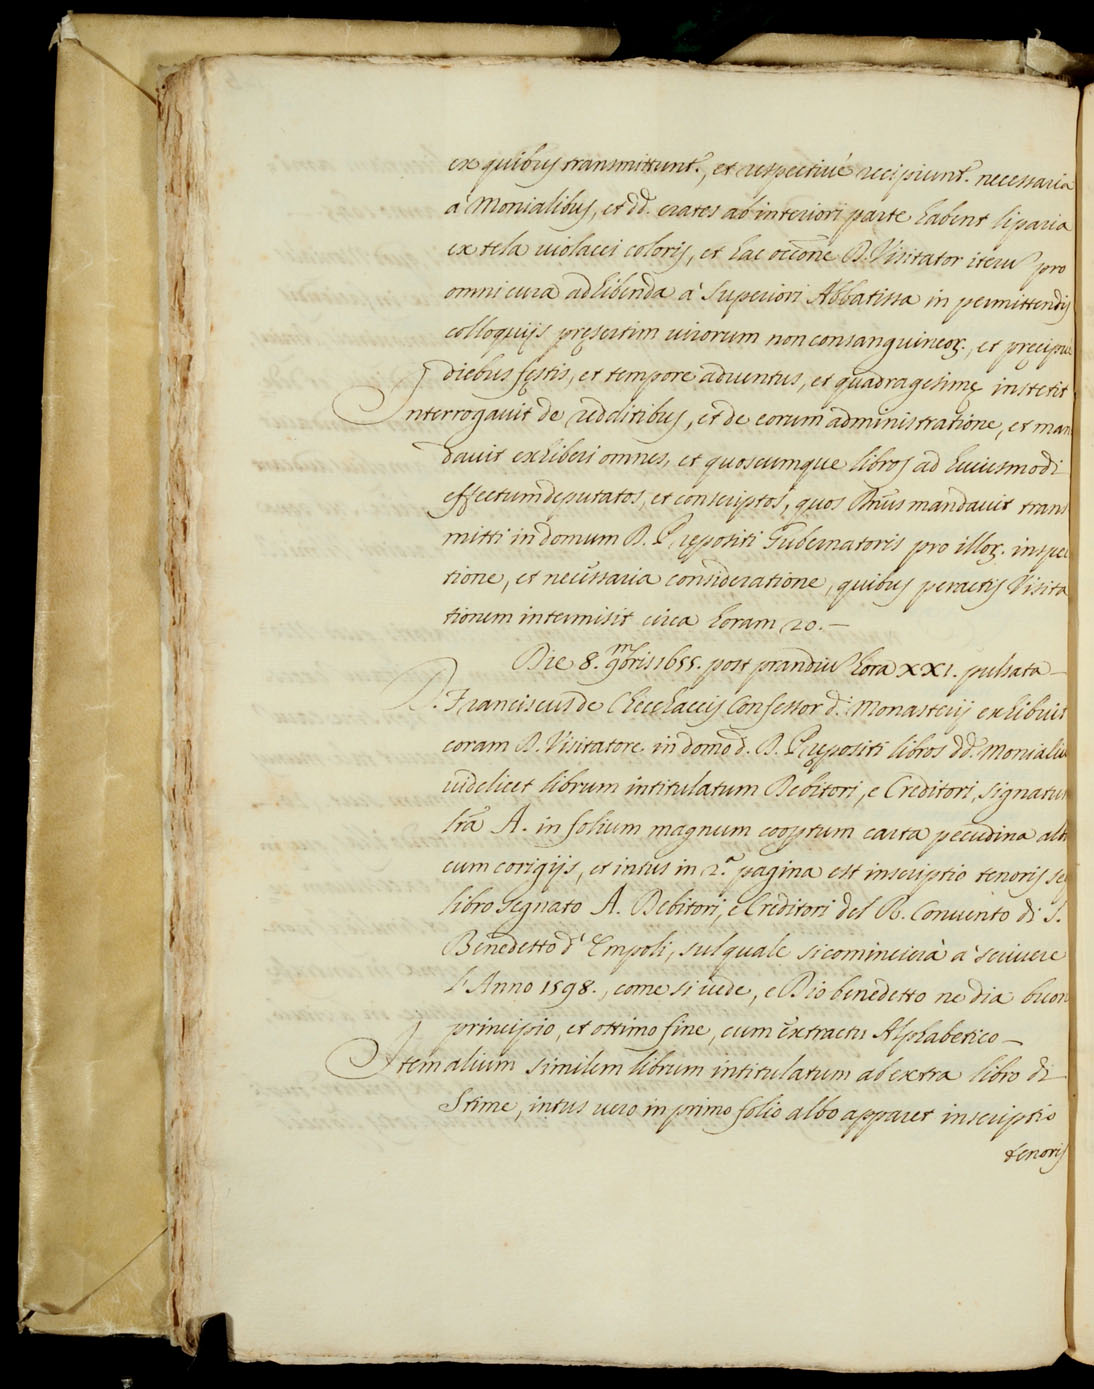 ex quibus transmittunt.r, et respectivè recipiunt.r necessaria
à Monialibus, et dd. crates ab interiori parte habent liparia
ex tela violacei coloris, et hac occ̄one D. Visitator iterū pro
omni cura adhibenda à superiori Abbatissa in permittendis
colloquijs pręsertim virorum non consanguineor., et pręcipuè
diebus festis, et tempore adventus, et quadragesimę institit
Interrogavit de redditibus, et de eorum administratione, et man
davit exhiberi omnes, et quoscumque libros ad huiusmodi
effectum deputatos, et conscriptos, quos Dnūs mandavit trans
mitti in domum D. Prępositi Gubernatoris pro illor. inspec
tione, et necessaria consideratione, quibus peractis Visita
tionem intermisit circa horam 20. —
Die 8. 9mbris 1655. post prandiū hora XXI. pulsata —
D. Franciscus de Checchaccijs Confessor d.i Monasterij exhibuit
coram D. Visitatore in domo d. D. Prępositi libros dd. Monialiū
videlicet librum intitulatum Debitori, e Creditori, signatum
lrā A. in folium magnum coopertum carta pecudina alb
cum corigijs, et intus in 2.a pagina est inscriptio tenoris seq
libro segnato A. Debitori, e Creditori del R. Convento di S.
Benedetto d'Empoli, sul quale si comincierà à scrivere
l'Anno 1598., come si vede, e Dio benedetto ne dia buon
principio, et ottimo fine, cum extractu Alphabetico —
Item alium similem librum intitulatum ab extra libro di
Stime, intus vero in primo folio albo apparet inscriptio
tenoris